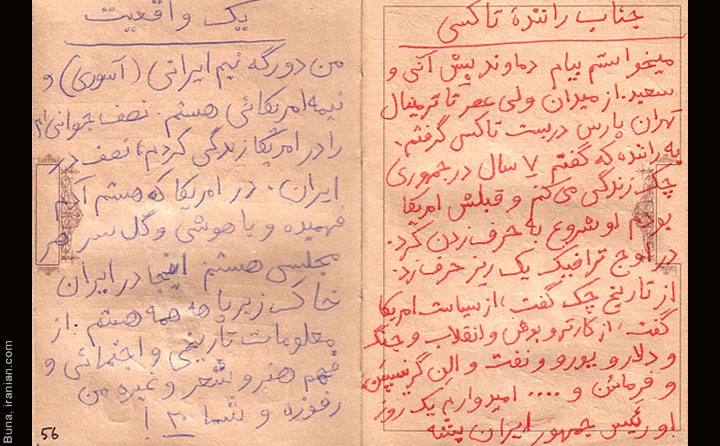 جناب رانندهٔ تاکسی
میخواستم بیام دماوند پیش آنی و
سعید. از میدان ولی عصر تا ترمینال
تهران پارس دربست تاکسی گرفتم.
به راننده که گفتم ۷ سال در جمهوری
چک زندگی می کنم و قبلش امریکا
بودم او شروع به حرف زدن کرد.
در اوج ترافیک یک ریز حرف زد.
از تاریخ چک گفت، از سیاست امریکا
گفت، از کارتر و بوش و انقلاب و جنگ
و دلار و یورو و نفت و الن گرسپن
و .... امیدوارم یک روز
او رئیس جمهور ایران بشه
یک واقعیت
من دورگه نیم ایرانی (آسوری) و
نیمه امریکائی هستم. نصف جوانی ام
را در امریکا زندگی کردم، نصف در
ایران. در امریکا که هستم آدم
فهمیده و باهوشی و گل سر هر
مجلسی هستم اینجا در ایران
خاک زیر پا همه هستم. از
معلومات تاریخی و اجتمائی و
فهم هنر و شعر و غیره من
رفوزه و شما ۲۰!
56
Buna, iranian.com